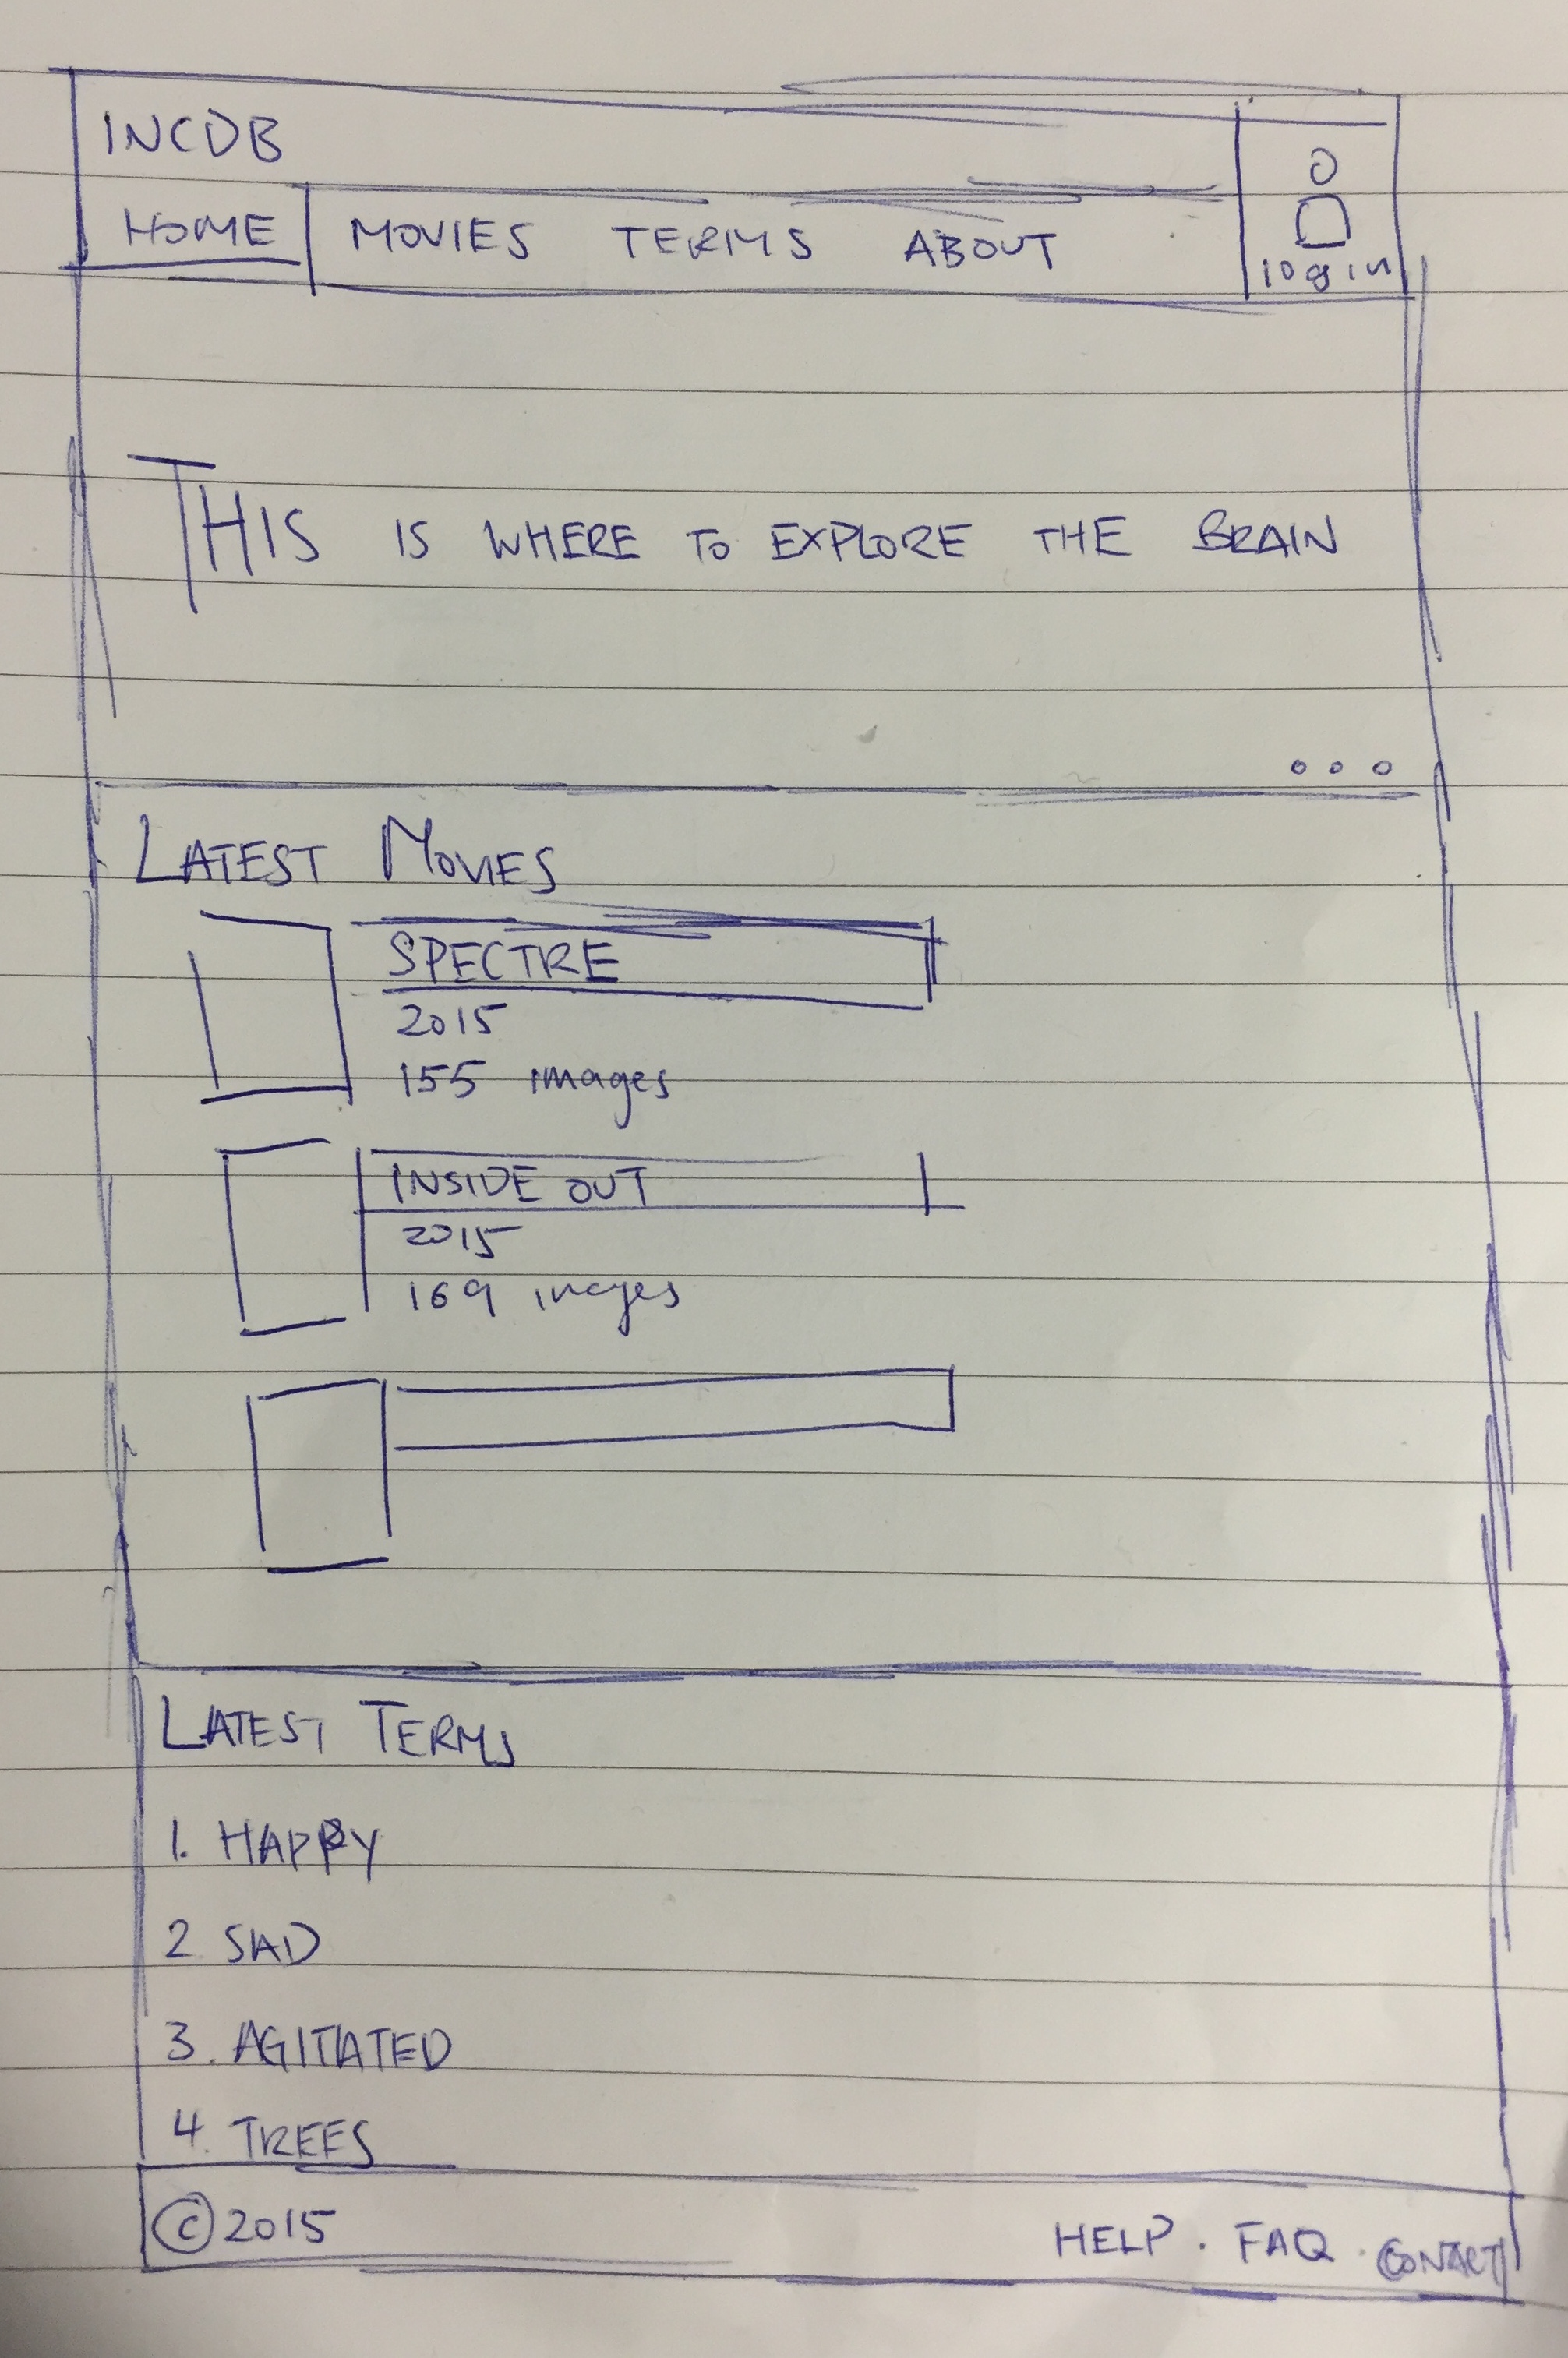 INCDB
HOME MOVIES TERMS ABOUT
login
THIS IS WHERE TO EXPLORE THE BRAIN
LATEST MOVIES
SPECTRE
2015
155 images
INSIDE OUT
2015
169 images
LATEST TERMS
1. HAPPY
2 SAD
3. AGITATED
4. TREES
© 2015 HELP . FAQ . CONTACT